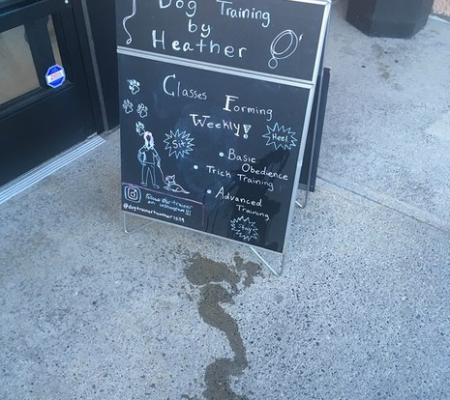 Dog Training
by
Heather
Classes Forming
Weekly!
Sit
Heel
• Basic
Obedience
• Trick Training
• Advanced
Training
Stay
follow our trainer
on instagram